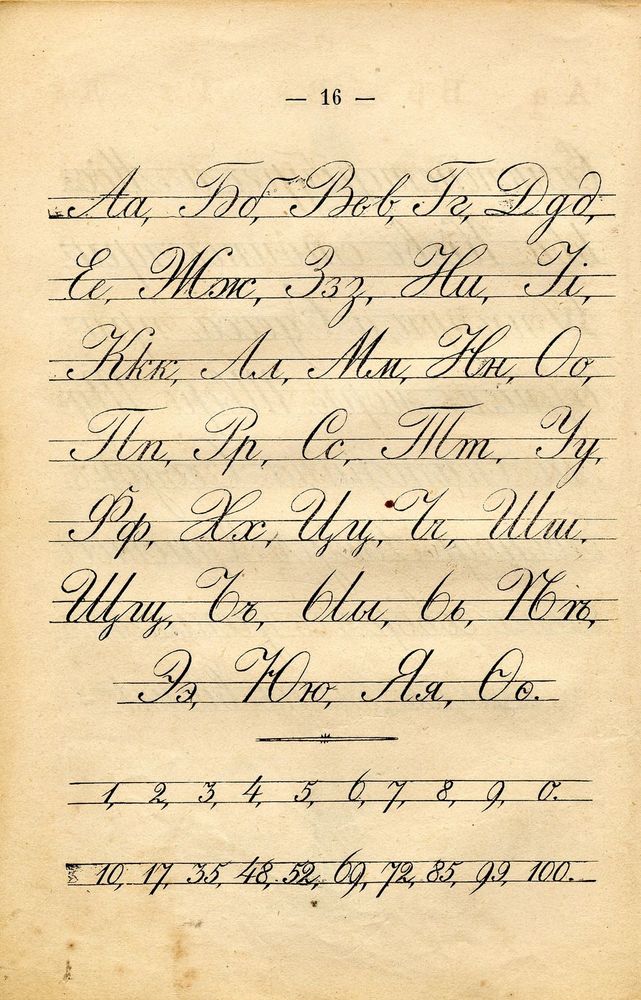 — 16 —
Аа, Бб, Ввв, Гг, Дgд,
Ее, Жж, Ззз, Ии, Іі,
Ккк, Лл, Мм, Нн, Оо,
Пп, Рр, Сс, Тт, Уу,
Фф, Хх, Цц, Чч, Шш,
Щщ, Ъъ, Ыы, Ьь, Ѣѣ,
Ээ, Юю, Яя, Ѳѳ.
1, 2, 3, 4, 5, 6, 7, 8, 9, 0.
10, 17, 35, 48, 52, 69, 72, 85, 99, 100.